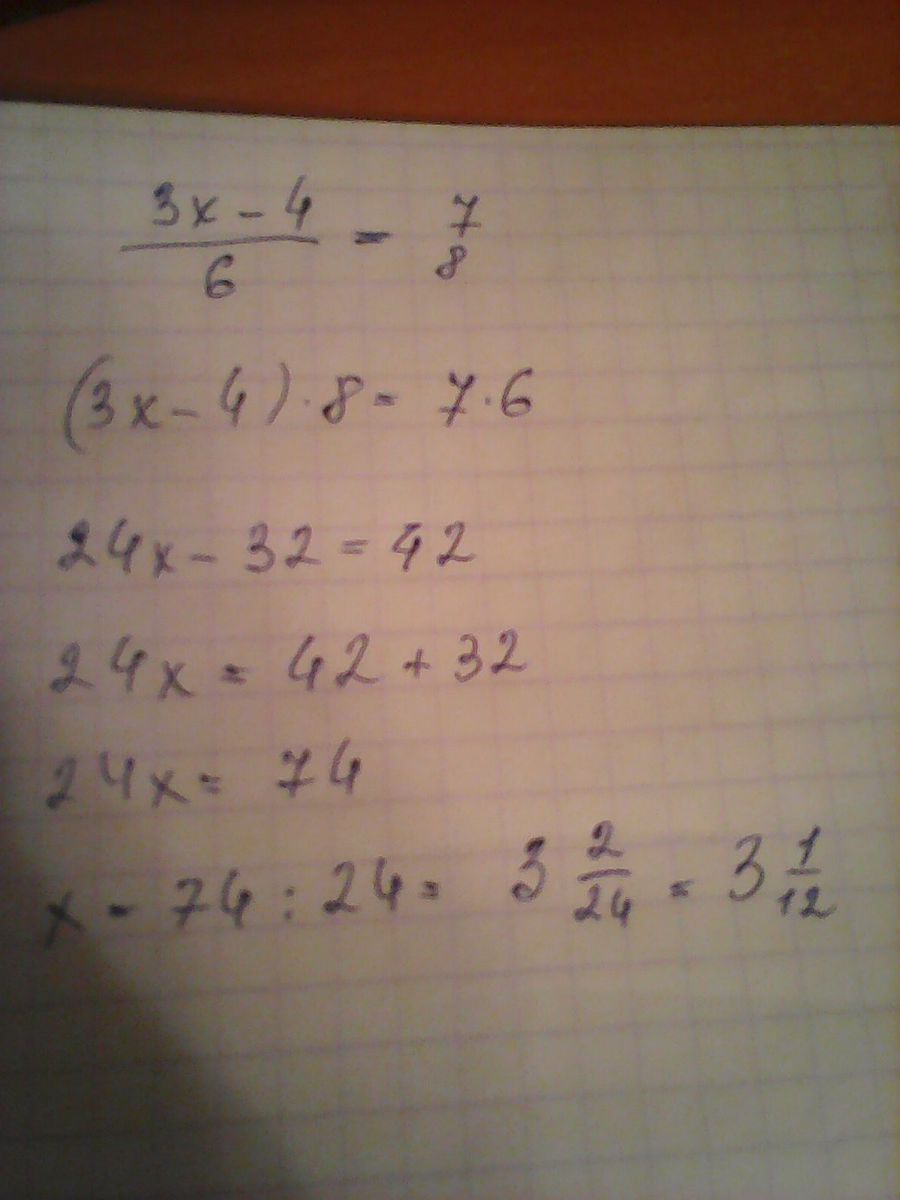 (3x - 4)/6 = 7/8
(3x - 4) · 8 = 7 · 6
24x - 32 = 42
24x = 42 + 32
24x = 74
x = 74 : 24 = 3 2/24 = 3 1/12